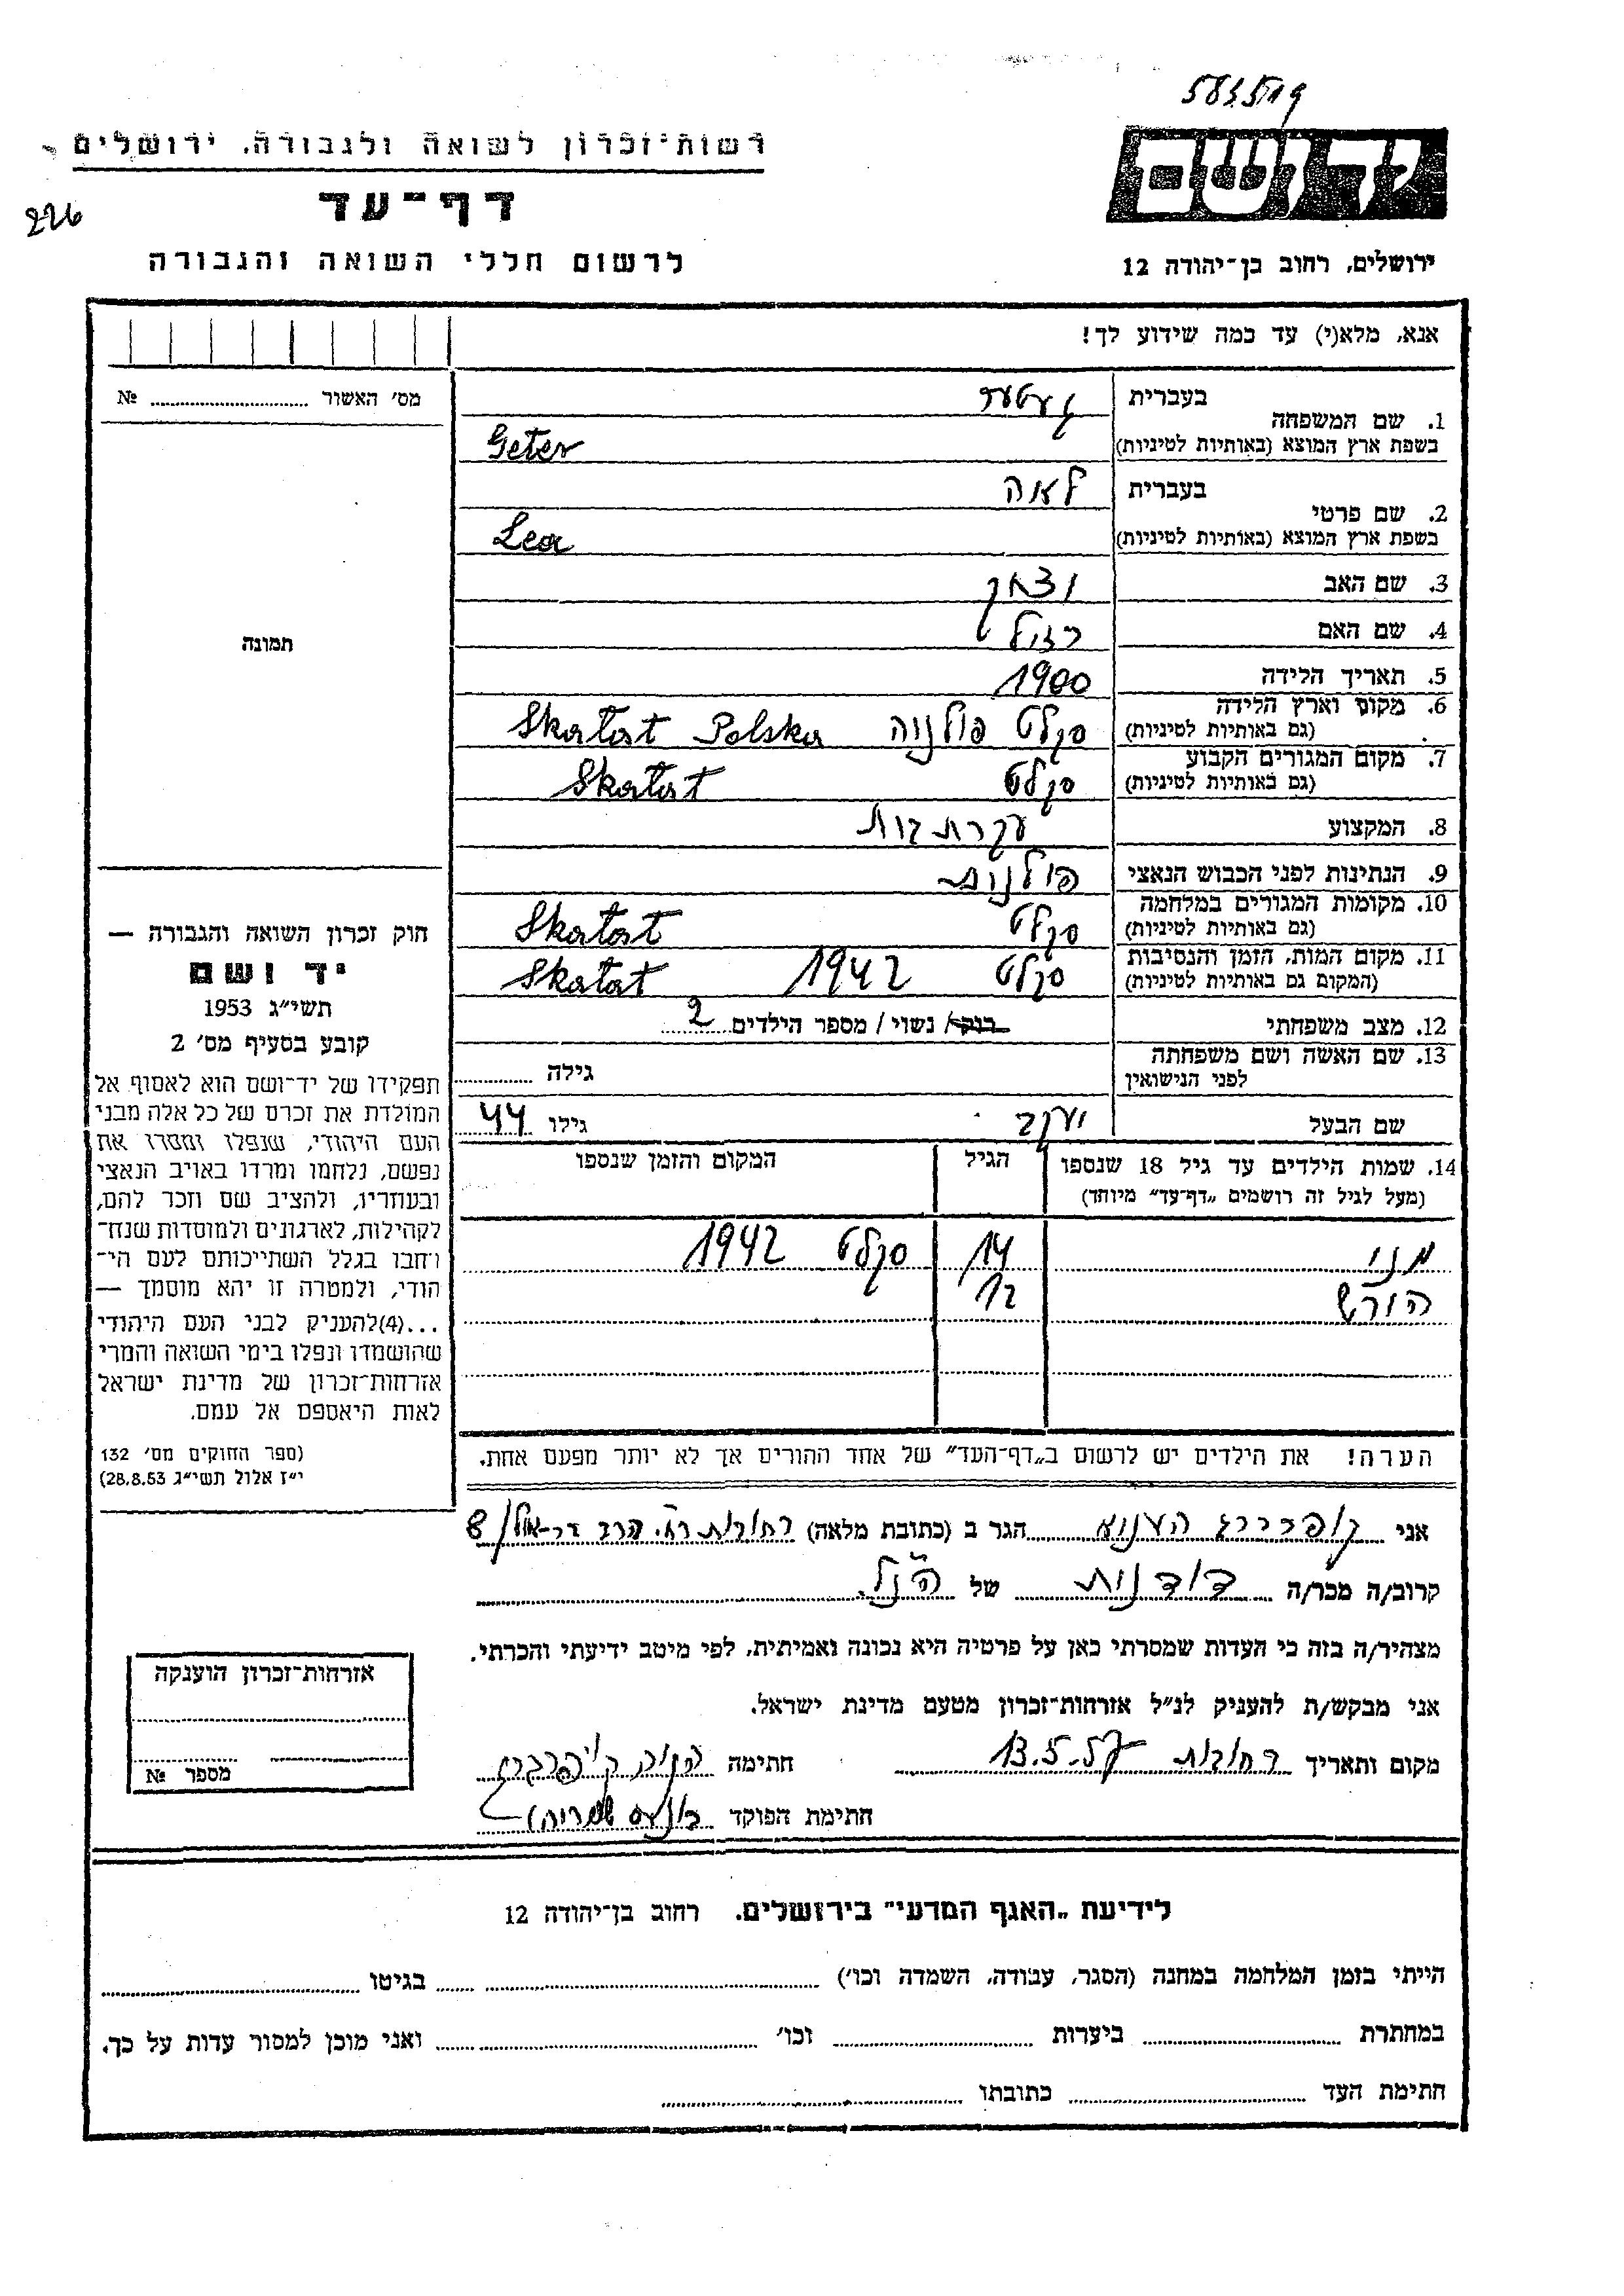 רשות־זכרון לשואה ולגבורה, ירושלים
דף־עד
226
לרשום חללי השואה והגבורה
ידושם
ירושלים, רחוב בן־יהודה 12
אנא, מלא(י) עד כמה שידוע לך!
מס׳ האשור № 
1. שם המשפחה בעברית
בשפת ארץ המוצא (באותיות לטיניות) Geter
2. שם פרטי בעברית לאה
בשפת ארץ המוצא (באותיות לטיניות) Lea
3. שם האב יצחק
4. שם האם
5. תאריך הלידה 1900
6. מקום וארץ הלידה (גם באותיות לטיניות) סקלט פולניה Skatat Polska
7. מקום המגורים הקבוע (גם באותיות לטיניות) סקלט Skatat
8. המקצוע עקרת בית
9. הנתינות לפני הכבוש הנאצי פולנית
10. מקומות המגורים במלחמה (גם באותיות לטיניות) סקלט Skatat
11. מקום המות, הזמן והנסיבות (המקום גם באותיות לטיניות) סקלט 1942 Skatat
12. מצב משפחתי רוק/ נשוי/ מספר הילדים 2
13. שם האשה ושם משפחתה לפני הנישואין גילה
שם הבעל יעקב גילו 44
14. שמות הילדים עד גיל 18 שנספו הגיל המקום והזמן שנספו
(מעל לגיל זה רושמים „דף־עד״ מיוחד)
מני 14 סקלט 1942
הירש 12
הערה! את הילדים יש לרשום ב„דף־העד״ של אחד ההורים אך לא יותר מפעם אחת.
תמונה
חוק זכרון השואה והגבורה —
יד ושם
תשי״ג 1953
קובע בסעיף מס׳ 2
תפקידו של יד־ושם הוא לאסוף אל
המולדת את זכרם של כל אלה מבני
העם היהודי, שנפלו ומסרו את
נפשם, נלחמו ומרדו באויב הנאצי
ובעוזריו, ולהציב שם וזכר להם,
לקהילות, לארגונים ולמוסדות שנח־
רבו בגלל השתייכותם לעם הי־
הודי, ולמטרה זו יהא מוסמך —
...(4)להעניק לבני העם היהודי
שהושמדו ונפלו בימי השואה והמרי
אזרחות־זכרון של מדינת ישראל
לאות היאספם אל עמם.
(ספר החוקים מס׳ 132
י״ז אלול תשי״ג 28.8.53)
אני קופרברג הגר ב (כתובת מלאה) רחובות רח׳ הרב בר־אילן 8
קרוב/ה מכר/ה דודנית של הנ״ל
מצהיר/ה בזה כי העדות שמסרתי כאן על פרטיה היא נכונה ואמיתית, לפי מיטב ידיעתי והכרתי.
אני מבקש/ת להעניק לנ״ל אזרחות־זכרון מטעם מדינת ישראל.
מקום ותאריך רחובות 13.5.57 חתימה
חתימת הפוקד
אזרחות־זכרון הוענקה
מספר №
לידיעת „האגף המדעי״ בירושלים. רחוב בן־יהודה 12
הייתי בזמן המלחמה במחנה (הסגר, עבודה, השמדה וכו׳) בגיטו
במחתרת ביערות וכו׳ ואני מוכן למסור עדות על כך.
חתימת העד כתובתו